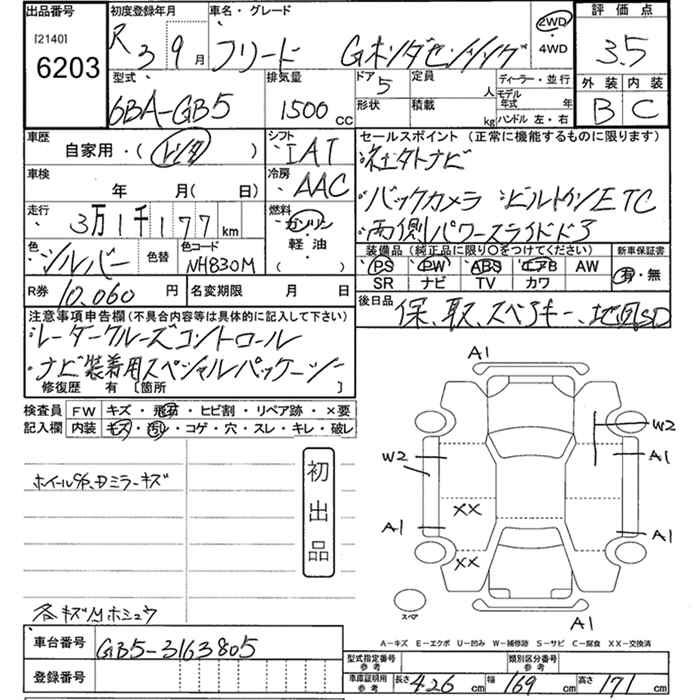 出品番号 初度登録年月 車名・グレード 評価点
[2140]
6203
R 3 9月 フリード Gホンダセンシング 2WD・4WD 3.5
型式 排気量 ドア 定員 ディーラー・並行 外装 内装
6BA-GB5 1500cc 5 人 モデル年式 年 B C
形状 積載 kg ハンドル 左・右
車歴 シフト セールスポイント(正常に機能するものに限ります)
自家用・(レンタ) IAT ・社外ナビ
車検 冷房
年 月(日) AAC ・バックカメラ ・ビルトインETC
走行 燃料
3万1千177km ガソリン ・両側パワースライドドア
色 色替 色コード 軽油 装備品(純正品に限り○をつけてください) 新車保証書
シルバー NH830M ( ) PS PW ABS エアB AW 有・無
SR ナビ TV カワ
R券 10,060円 名変期限 月 日 後日品
保、取、スペアキー、地図SD
注意事項申告欄(不具合内容等は具体的に記入して下さい)
・レーダークルーズコントロール
・ナビ装着用スペシャルパッケージ
修復歴 有〔箇所 〕
検査員 FW キズ・飛石・ヒビ割・リペア跡・×要
記入欄 内装 キズ・汚レ・コゲ・穴・スレ・キレ・破レ
A1
W2
W2 A1
ホイールキズ、Dミラーキズ
初出品
XX
A1 A1
XX
スペア
各キズ小ホシュウ
A1
A-キズ E-エクボ U-凹み W-補修跡 S-サビ C-腐食 XX-交換済
車台番号 GB5-3163805
型式指定番号 参考 類別区分番号 参考
登録番号 車庫証明用 参考 長さ 426cm 幅 169cm 高さ 171cm